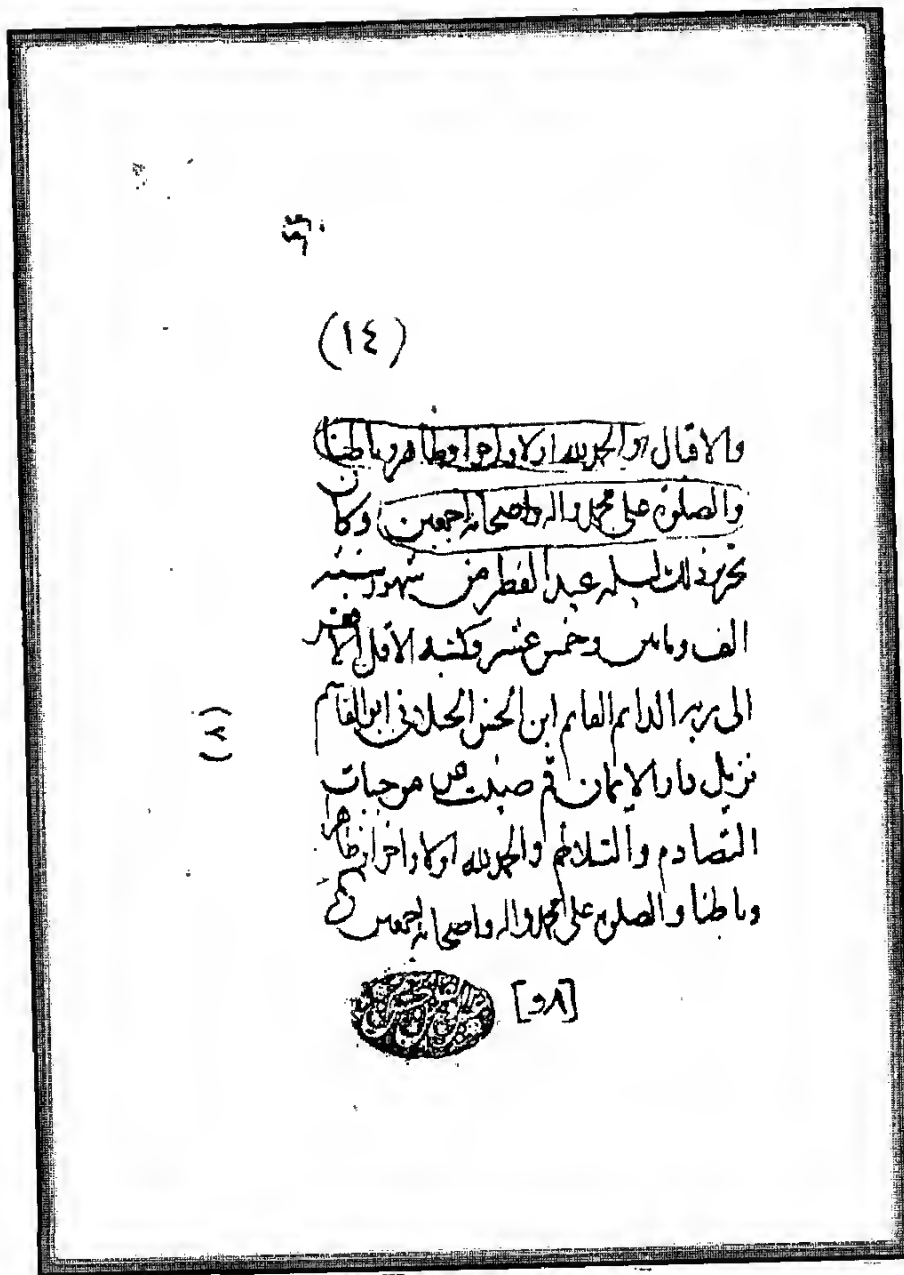 (١٤)
والاقبال والحمد لله اولا واخرا وظاهرا وباطنا
والصلوة على محمد واله واصحابه اجمعين وكان
تحرير ذلك ليله عيد الفطر من شهور سنه
الف وماتين وخمس عشر وكتبه الاقل الاحقر
الى ربه الدايم القايم ابن الحسن الجيلاني ابو القاسم
نزيل دار الايمان قم صينت عن موجبات
التصادم والتلاطم والحمد لله اولا واخرا وظاهرا
وباطنا والصلوه على محمد واله واصحابه اجمعين
[٨و]
(٢)